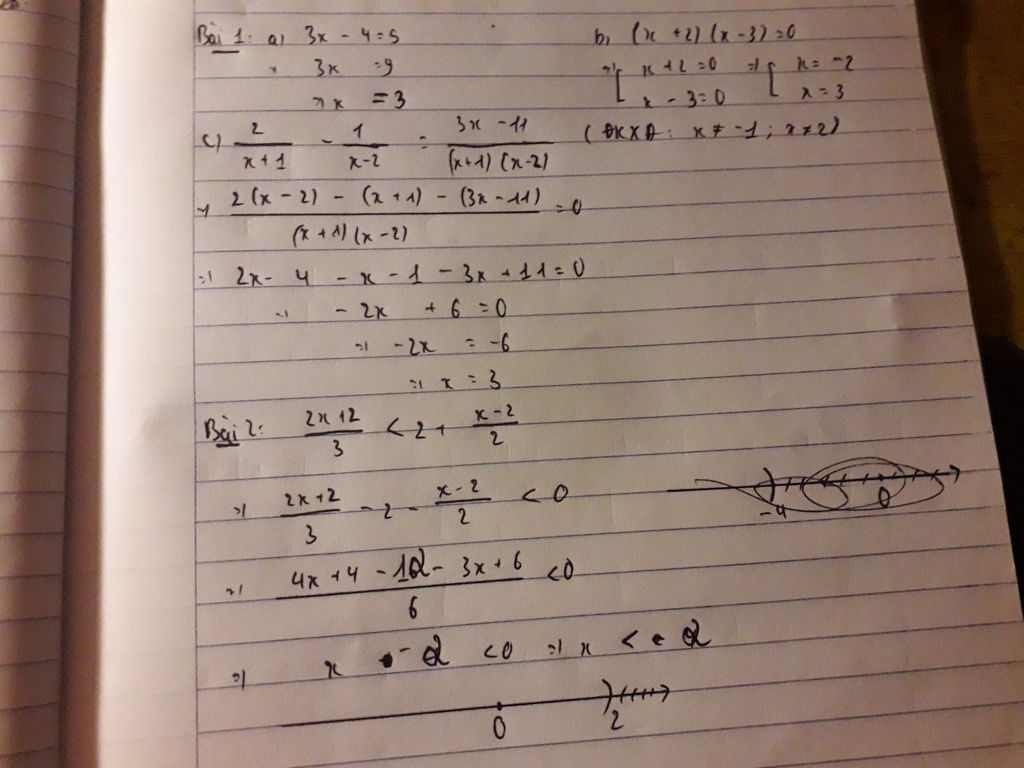 Bài 1: a) 3x - 4 = 5
=> 3x = 9
=> x = 3
b) (x + 2) (x - 3) = 0
=> [ x + 2 = 0 => [ x = -2
x - 3 = 0 x = 3
c) 2/(x + 1) - 1/(x - 2) = (3x - 11)/((x + 1) (x - 2)) (ĐKXĐ: x ≠ -1; x ≠ 2)
=> (2(x - 2) - (x + 1) - (3x - 11))/((x + 1) (x - 2)) = 0
=> 2x - 4 - x - 1 - 3x + 11 = 0
=> - 2x + 6 = 0
=> -2x = -6
=> x = 3
Bài 2: (2x + 2)/3 < 2 + (x - 2)/2
=> (2x + 2)/3 - 2 - (x - 2)/2 < 0
-4 0
=> (4x + 4 - 12 - 3x + 6)/6 < 0
=> x - 2 < 0 => x < 2
0 2